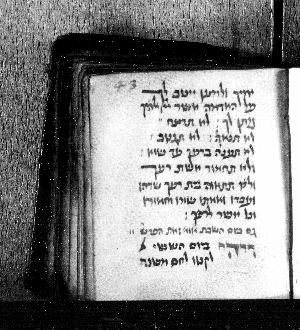 ימיך ולמען ייטב לך
על האדמה אשר יי אלהיך
נתן לך׃ לא תרצח
לא תנאף׃ לא תגנב׃
לא תענה ברעך עד שוא׃
ולא תחמוד אשת רעך
ולא תתאוה בית רעך שדהו
ועבדו ואמתו שורו וחמורו
וכל אשר לרעך׃
גם ביום השבת
ביום הששי
לקטו לחם משנה